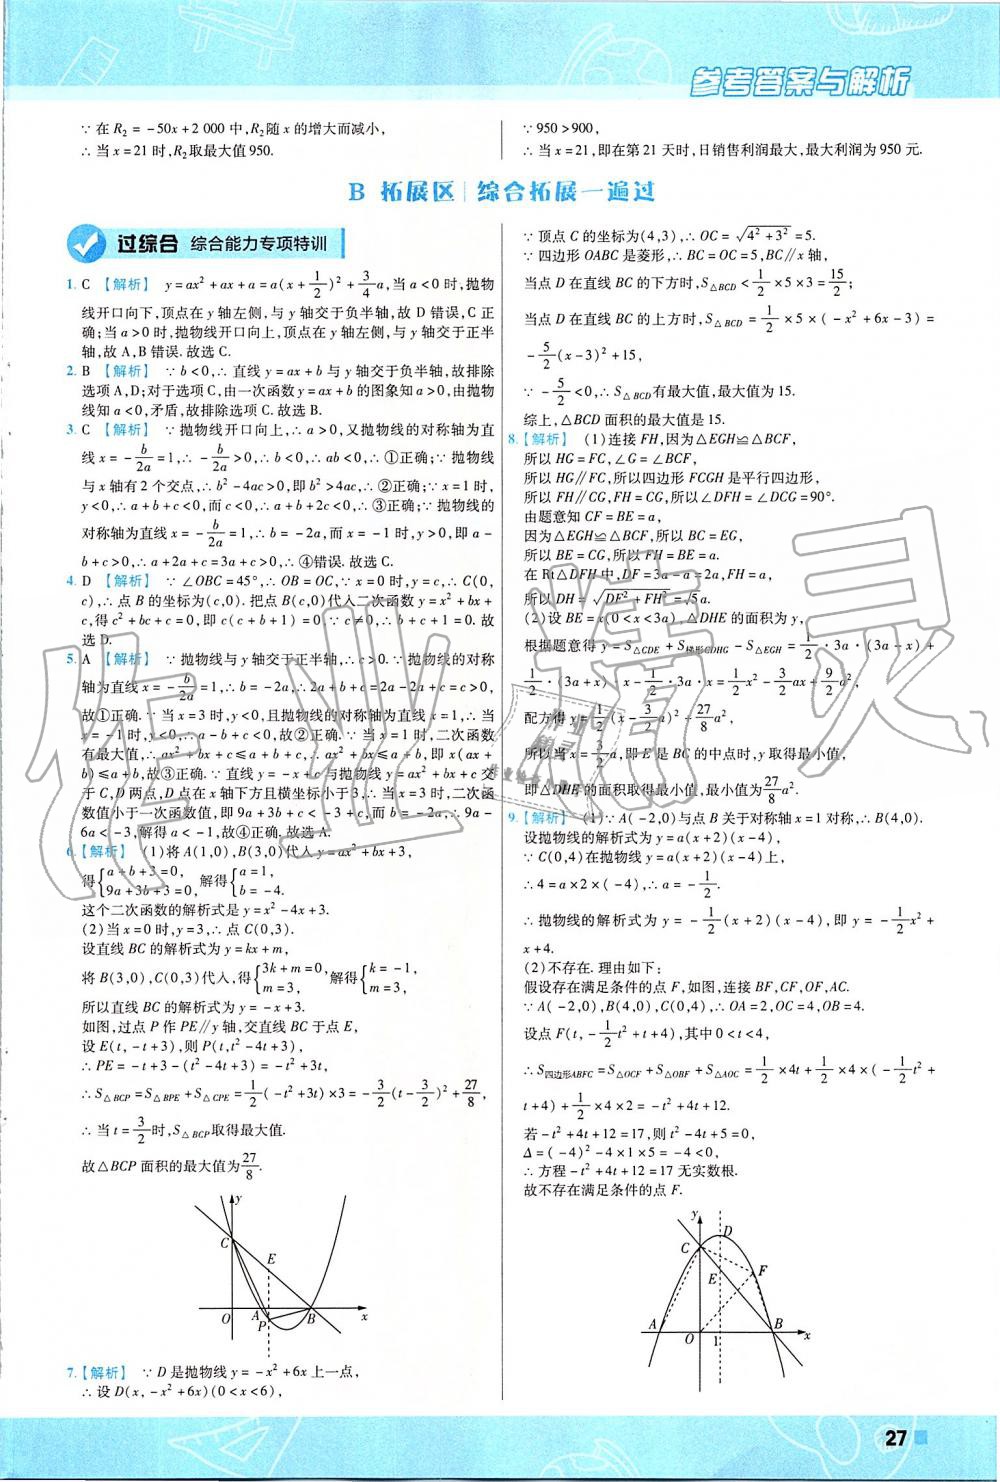 参考答案与解析
∵ 在 R₂ = -50x + 2 000 中,R₂随 x 的增大而减小,
∴ 当 x = 21 时,R₂取最大值 950.
∵ 950 > 900,
∴ 当 x = 21,即在第 21 天时,日销售利润最大,最大利润为 950 元.
B 拓展区 | 综合拓展一遍过
过综合 综合能力专项特训
1. C 【解析】 y = ax² + ax + a = a(x + 1/2)² + 3/4 a,当 a < 0 时,抛物
线开口向下,顶点在 y 轴左侧,与 y 轴交于负半轴,故 D 错误,C 正
确;当 a > 0 时,抛物线开口向上,顶点在 y 轴左侧,与 y 轴交于正半
轴,故 A,B 错误. 故选 C.
2. B 【解析】 ∵ b < 0,∴ 直线 y = ax + b 与 y 轴交于负半轴,故排除
选项 A,D;对于选项 C,由一次函数 y = ax + b 的图象知 a > 0,由抛物
线知 a < 0,矛盾,故排除选项 C. 故选 B.
3. C 【解析】 ∵ 抛物线开口向上,∴ a > 0,又抛物线的对称轴为直
线 x = -b/2a = 1,∴ -b/2a > 0,∴ b < 0,∴ ab < 0,∴ ①正确;∵ 抛物线
与 x 轴有 2 个交点,∴ b² - 4ac > 0,即 b² > 4ac,∴ ②正确;∵ x = 1 时,
y < 0,∴ a + b + c < 0,而 c < 0,∴ a + b + 2c < 0,∴ ③正确;∵ 抛物线的
对称轴为直线 x = -b/2a = 1,∴ b = -2a,而 x = -1 时,y > 0,即 a -
b + c > 0,∴ a + 2a + c = 3a + c > 0,∴ ④错误. 故选 C.
4. D 【解析】 ∵ ∠OBC = 45°,∴ OB = OC,∵ x = 0 时,y = c,∴ C(0,
c),∴ 点 B 的坐标为(c,0). 把点 B(c,0)代入二次函数 y = x² + bx +
c,得 c² + bc + c = 0,即 c(c + b + 1) = 0,∵ c ≠ 0,∴ c + b + 1 = 0. 故
选 D.
5. A 【解析】 ∵ 抛物线与 y 轴交于正半轴,∴ c > 0. ∵ 抛物线的对称
轴为直线 x = -b/2a = 1,∴ b = -2a,∴ 2a + b + c = 2a - 2a + c = c > 0,
故①正确. ∵ 当 x = 3 时,y < 0,且抛物线的对称轴为直线 x = 1,∴ 当
x = -1 时,y < 0,∴ a - b + c < 0,故②正确. ∵ 当 x = 1 时,二次函数
有最大值,∴ ax² + bx + c ≤ a + b + c,∴ ax² + bx ≤ a + b,即 x(ax +
b) ≤ a + b,故③正确. ∵ 直线 y = -x + c 与抛物线 y = ax² + bx + c 交
于 C,D 两点,D 点在 x 轴下方且横坐标小于 3,∴ 当 x = 3 时,二次函
数值小于一次函数值,即 9a + 3b + c < -3 + c,而 b = -2a,∴ 9a -
6a < -3,解得 a < -1,故④正确. 故选 A.
6. 【解析】 (1)将 A(1,0),B(3,0)代入 y = ax² + bx + 3,
得{a + b + 3 = 0, 9a + 3b + 3 = 0, 解得{a = 1, b = -4.
这个二次函数的解析式是 y = x² - 4x + 3.
(2)当 x = 0 时,y = 3,∴ 点 C(0,3).
设直线 BC 的解析式为 y = kx + m,
将 B(3,0),C(0,3)代入,得{3k + m = 0, m = 3, 解得{k = -1, m = 3.
所以直线 BC 的解析式为 y = -x + 3.
如图,过点 P 作 PE∥y 轴,交直线 BC 于点 E,
设 E(t, -t + 3),则 P(t,t² - 4t + 3),
∴ PE = -t + 3 - (t² - 4t + 3) = -t² + 3t,
∴ S△BCP = S△BPE + S△CPE = 1/2(-t² + 3t) × 3 = -3/2(t - 3/2)² + 27/8,
∴ 当 t = 3/2 时,S△BCP 取得最大值.
故△BCP 面积的最大值为 27/8.
y
C
E
O A P B x
7. 【解析】 ∵ D 是抛物线 y = -x² + 6x 上一点,
∴ 设 D(x, -x² + 6x)(0 < x < 6),
∵ 顶点 C 的坐标为(4,3),∴ OC = √(4² + 3²) = 5.
∵ 四边形 OABC 是菱形,∴ BC = OC = 5,BC∥x 轴,
当点 D 在直线 BC 的下方时,S△BCD < 1/2 × 5 × 3 = 15/2;
当点 D 在直线 BC 的上方时,S△BCD = 1/2 × 5 × (-x² + 6x - 3) =
-5/2(x - 3)² + 15,
∵ -5/2 < 0,∴ S△BCD 有最大值,最大值为 15.
综上,△BCD 面积的最大值是 15.
8. 【解析】 (1)连接 FH,因为△EGH≌△BCF,
所以 HG = FC,∠G = ∠BCF,
所以 HG∥FC,所以四边形 FCGH 是平行四边形,
所以 FH∥CG,FH = CG,所以∠DFH = ∠DCG = 90°.
由题意知 CF = BE = a,
因为△EGH≌△BCF,所以 BC = EG,
所以 BE = CG,所以 FH = BE = a.
在 Rt△DFH 中,DF = 3a - a = 2a,FH = a,
所以 DH = √(DF² + FH²) = √5 a.
(2)设 BE = x(0 < x < 3a),△DHE 的面积为 y,
根据题意得 y = S△CDE + S梯形CDHG - S△EGH = 1/2 · 3a · (3a - x) +
1/2 · (3a + x) · x - 1/2 · 3a · x = 1/2 x² - 3/2 ax + 9/2 a²,
配方得 y = 1/2(x - 3/2 a)² + 27/8 a²,
所以当 x = 3/2 a,即 E 是 BC 的中点时,y 取得最小值,
即△DHE 的面积取得最小值,最小值为 27/8 a².
9. 【解析】 (1)∵ A(-2,0)与点 B 关于对称轴 x = 1 对称,∴ B(4,0).
设抛物线的解析式为 y = a(x + 2)(x - 4),
∵ C(0,4)在抛物线 y = a(x + 2)(x - 4),
∴ 4 = a × 2 × (-4),∴ a = -1/2.
∴ 抛物线的解析式为 y = -1/2(x + 2)(x - 4),即 y = -1/2 x² +
x + 4.
(2)不存在. 理由如下:
假设存在满足条件的点 F,如图,连接 BF,CF,OF,AC.
∵ A(-2,0),B(4,0),C(0,4),∴ OA = 2,OC = 4,OB = 4.
设点 F(t, -1/2 t² + t + 4),其中 0 < t < 4,
∴ S四边形ABFC = S△OCF + S△OBF + S△AOC = 1/2 × 4t + 1/2 × 4 × (-1/2 t² +
t + 4) + 1/2 × 4 × 2 = -t² + 4t + 12.
若 -t² + 4t + 12 = 17,则 t² - 4t + 5 = 0,
Δ = (-4)² - 4 × 1 × 5 = -4 < 0,
∴ 方程 -t² + 4t + 12 = 17 无实数根.
故不存在满足条件的点 F.
y
D
C
E F
A O 1 B x
作业精灵
27